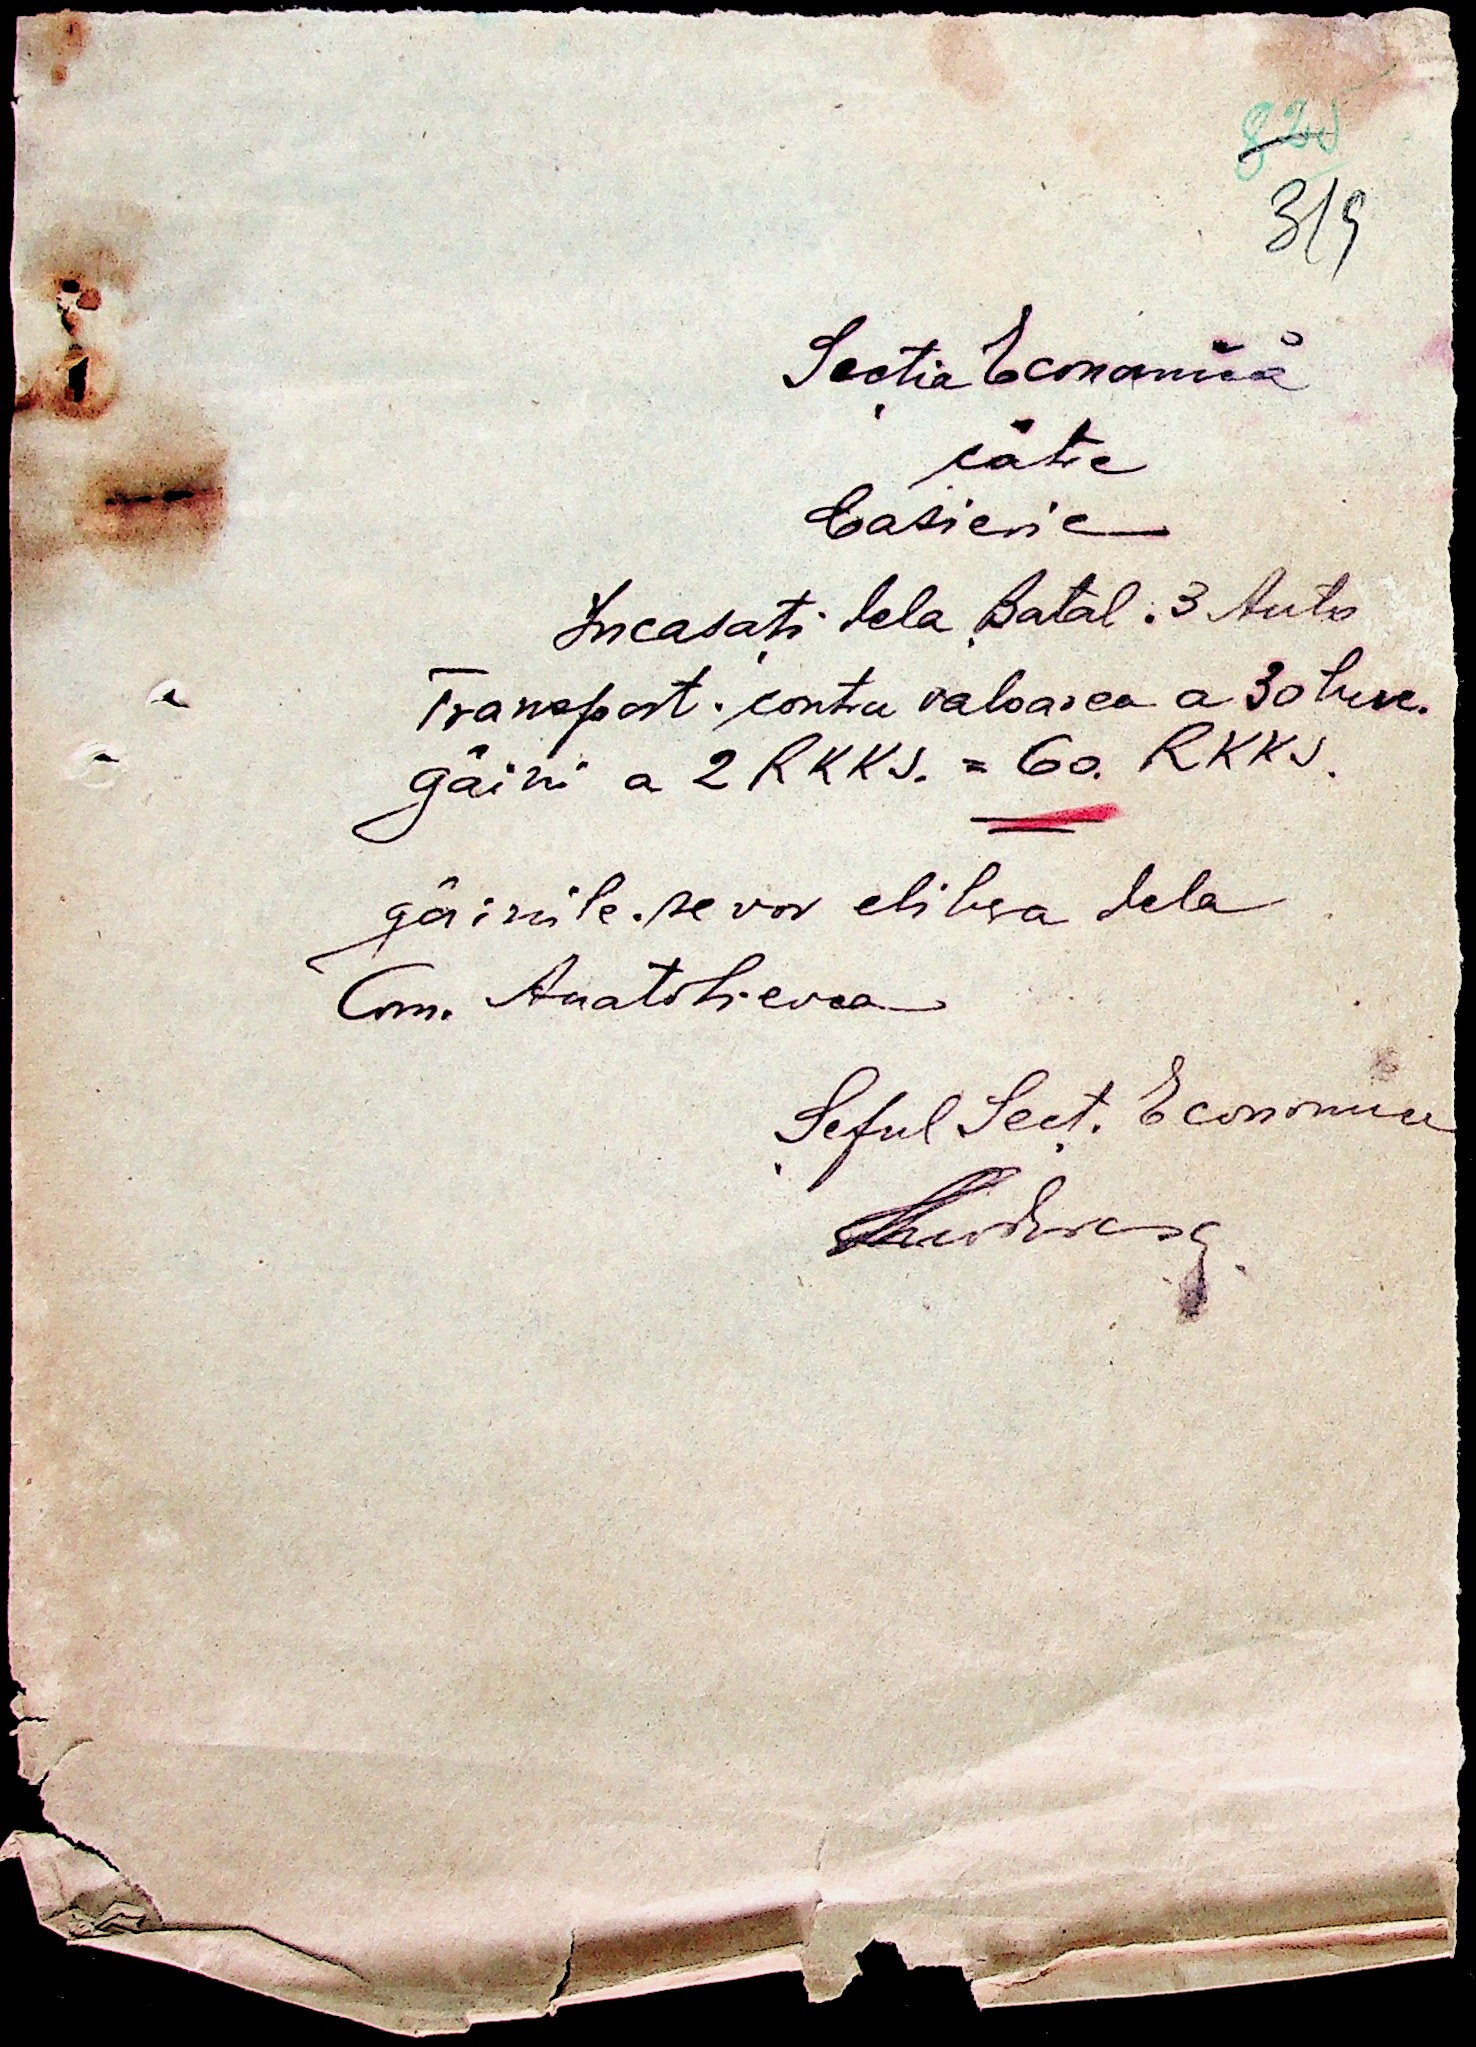 825
319
Secția Economică
către
Casierie
Incasați dela Batal. 3 Auto
Transport. contra valoarea a 30 buc.
găini a 2 RKKS. = 60. RKKS.
găinile. se vor elibera dela
Com. Anatolievca
Șeful Secț. Economice